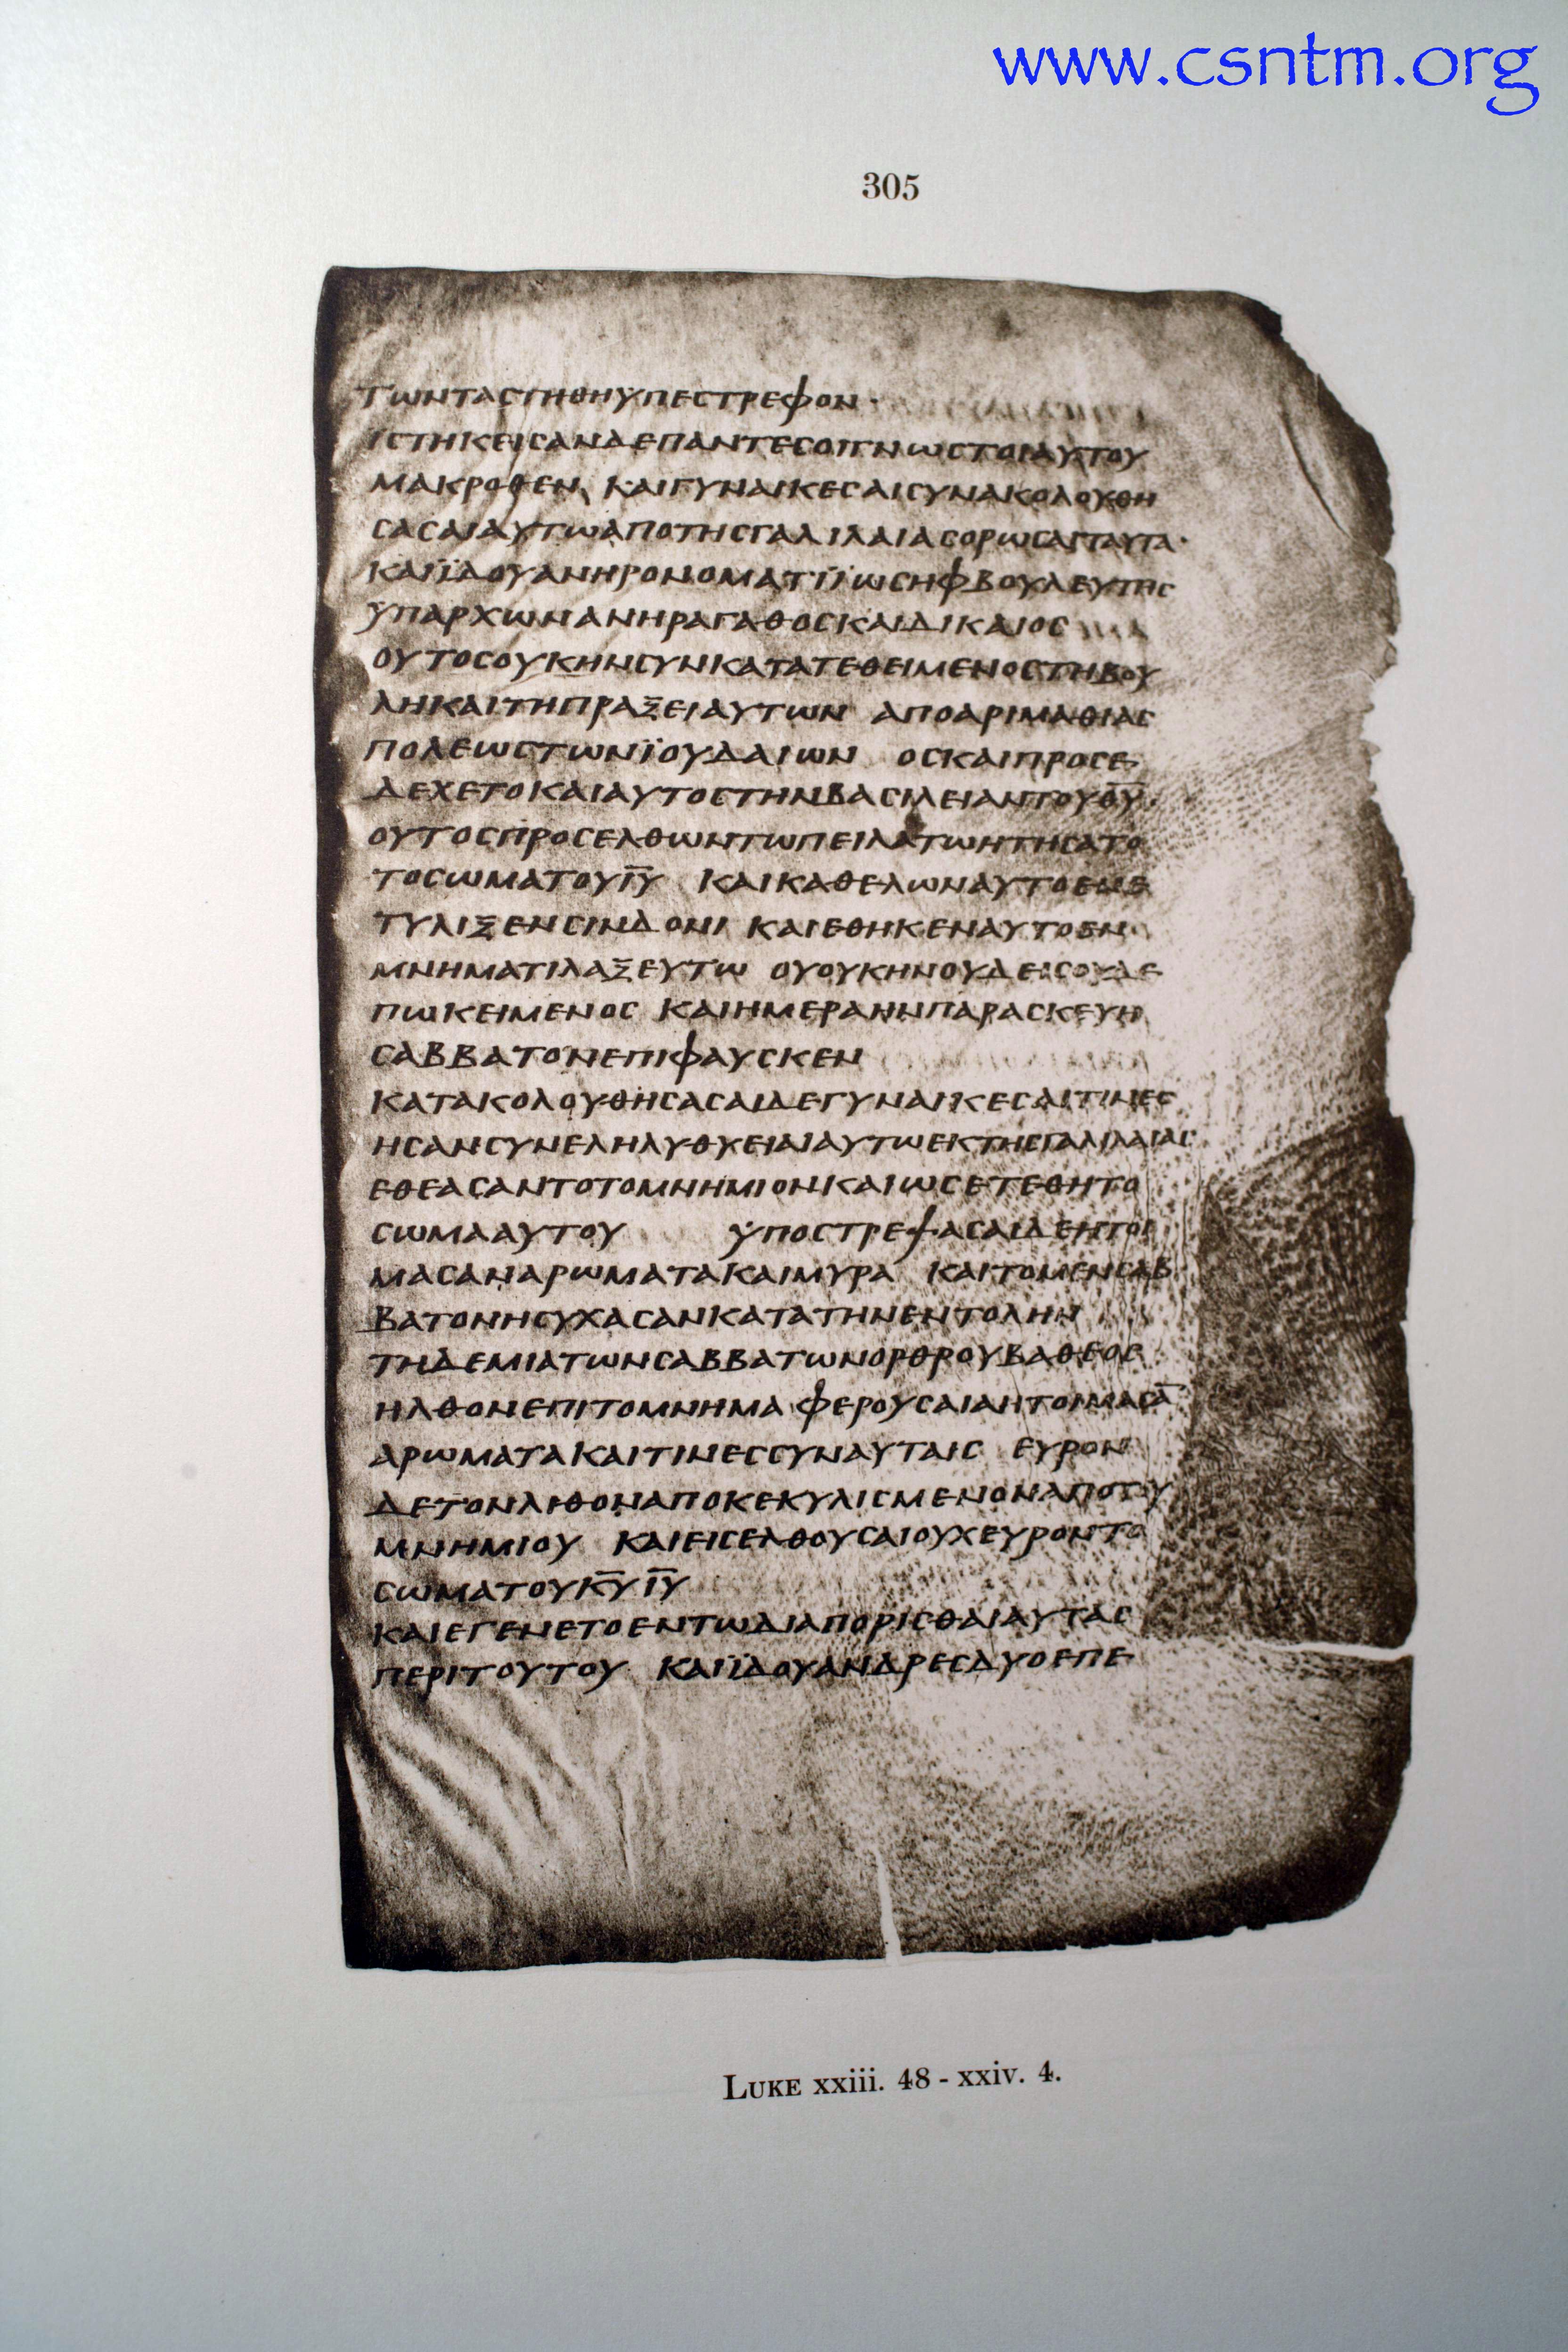 www.csntm.org
305
ΤωΝΤΑϹΤΗΘΗΥΠΕϹΤΡΕΦΟΝ·
ΙϹΤΗΚΕΙϹΑΝΔΕΠΑΝΤΕϹΟΙΓΝωϹΤΟΙΑΥΤΟΥ
ΜΑΚΡΟΘΕΝ ΚΑΙΓΥΝΑΙΚΕϹΑΙϹΥΝΑΚΟΛΟΥΘΗ
ϹΑϹΑΙΑΥΤωΑΠΟΤΗϹΓΑΛΙΛΑΙΑϹΟΡωϹΑΙΤΑΥΤΑ·
ΚΑΙΪΔΟΥΑΝΗΡΟΝΟΜΑΤΙΪωϹΗΦΒΟΥΛΕΥΤΗϹ
ΫΠΑΡΧωΝΑΝΗΡΑΓΑΘΟϹΚΑΙΔΙΚΑΙΟϹ
ΟΥΤΟϹΟΥΚΗΝϹΥΝΚΑΤΑΤΕΘΕΙΜΕΝΟϹΤΗΒΟΥ
ΛΗΚΑΙΤΗΠΡΑΞΕΙΑΥΤωΝ ΑΠΟΑΡΙΜΑΘΙΑϹ
ΠΟΛΕωϹΤωΝΪΟΥΔΑΙωΝ ΟϹΚΑΙΠΡΟϹΕ
ΔΕΧΕΤΟΚΑΙΑΥΤΟϹΤΗΝΒΑϹΙΛΕΙΑΝΤΟΥΘ̅Υ̅·
ΟΥΤΟϹΠΡΟϹΕΛΘωΝΤωΠΕΙΛΑΤωΗΤΗϹΑΤΟ
ΤΟϹωΜΑΤΟΥΙ̅Υ̅ ΚΑΙΚΑΘΕΛωΝΑΥΤΟΕΝΕ
ΤΥΛΙΞΕΝϹΙΝΔΟΝΙ ΚΑΙΕΘΗΚΕΝΑΥΤΟΕΝ
ΜΝΗΜΑΤΙΛΑΞΕΥΤω ΟΥΟΥΚΗΝΟΥΔΕΙϹΟΥΔΕ
ΠωΚΕΙΜΕΝΟϹ ΚΑΙΗΜΕΡΑΗΝΠΑΡΑϹΚΕΥΗ
ϹΑΒΒΑΤΟΝΕΠΙΦΑΥϹΚΕΝ
ΚΑΤΑΚΟΛΟΥΘΗϹΑϹΑΙΔΕΓΥΝΑΙΚΕϹΑΙΤΙΝΕϹ
ΗϹΑΝϹΥΝΕΛΗΛΥΘΥΕΙΑΙΑΥΤωΕΚΤΗϹΓΑΛΙΛΑΙΑϹ
ΕΘΕΑϹΑΝΤΟΤΟΜΝΗΜΙΟΝΚΑΙωϹΕΤΕΘΗΤΟ
ϹωΜΑΑΥΤΟΥ ΫΠΟϹΤΡΕΨΑϹΑΙΔΕΗΤΟΙ
ΜΑϹΑΝΑΡωΜΑΤΑΚΑΙΜΥΡΑ ΚΑΙΤΟΜΕΝϹΑΒ
ΒΑΤΟΝΗϹΥΧΑϹΑΝΚΑΤΑΤΗΝΕΝΤΟΛΗΝ
ΤΗΔΕΜΙΑΤωΝϹΑΒΒΑΤωΝΟΡΘΡΟΥΒΑΘΕΟϹ
ΗΛΘΟΝΕΠΙΤΟΜΝΗΜΑ ΦΕΡΟΥϹΑΙΑΗΤΟΙΜΑϹΑ̅
ΑΡωΜΑΤΑΚΑΙΤΙΝΕϹϹΥΝΑΥΤΑΙϹ ΕΥΡΟΝ
ΔΕΤΟΝΛΙΘΟΝΑΠΟΚΕΚΥΛΙϹΜΕΝΟΝΑΠΟΤΟΥ
ΜΝΗΜΙΟΥ ΚΑΙΕΙϹΕΛΘΟΥϹΑΙΟΥΧΕΥΡΟΝΤΟ
ϹωΜΑΤΟΥΚ̅Υ̅Ι̅Υ̅
ΚΑΙΕΓΕΝΕΤΟΕΝΤωΔΙΑΠΟΡΙϹΘΑΙΑΥΤΑϹ
ΠΕΡΙΤΟΥΤΟΥ ΚΑΙΪΔΟΥΑΝΔΡΕϹΔΥΟΕΠΕ
LUKE xxiii. 48 - xxiv. 4.